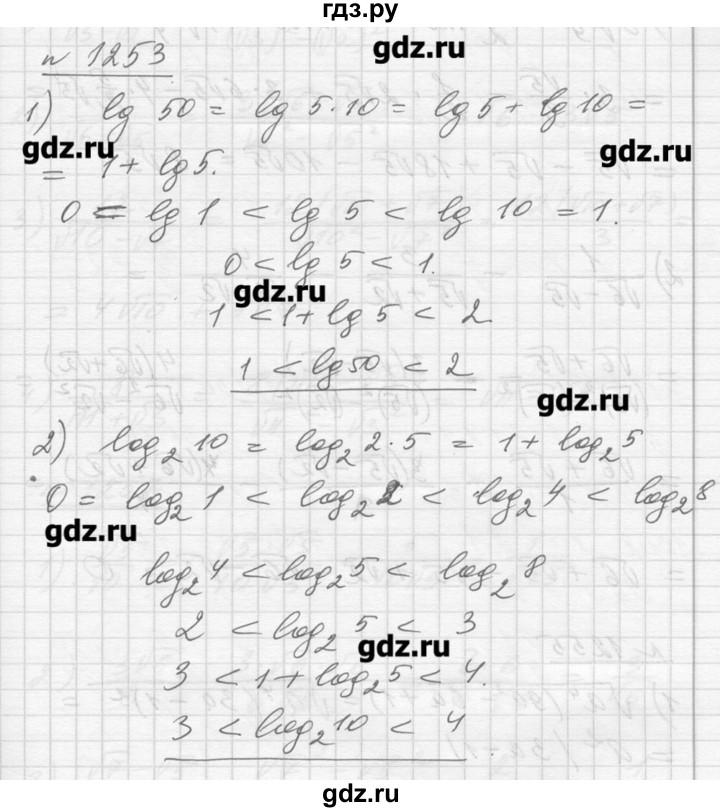 гдз.ру
n 1253
gdz.ru
1) lg 50 = lg 5·10 = lg 5 + lg 10 =
gdz.ru
gdz.ru
= 1 + lg 5.
0 = lg 1 < lg 5 < lg 10 = 1.
0 < lg 5 < 1.
gdz.ru
1 < 1 + lg 5 < 2.
1 < lg 50 < 2
gdz.ru
2) log₂ 10 = log₂ 2·5 = 1 + log₂ 5
0 = log₂ 1 < log₂ 2 < log₂ 4 < log₂ 8
gdz.ru
log₂ 4 < log₂ 5 < log₂ 8
2 < log₂ 5 < 3
gdz.ru
3 < 1 + log₂ 5 < 4.
3 < log₂ 10 < 4
gdz.ru